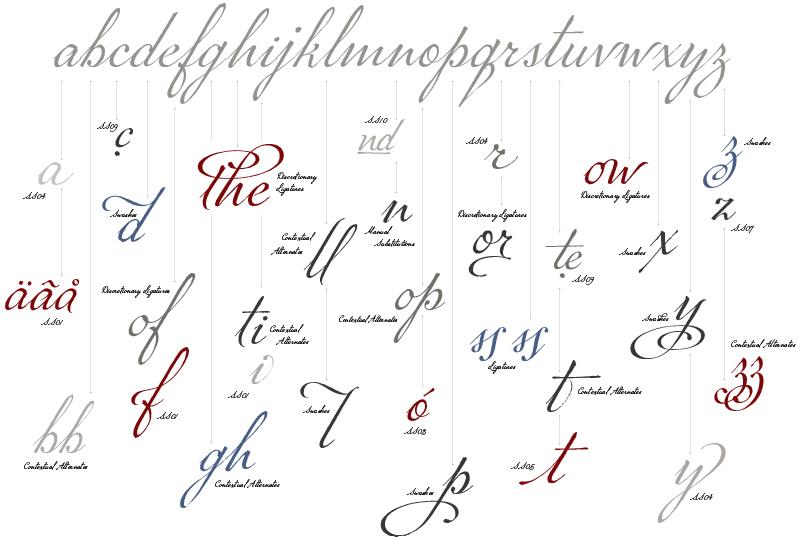 abcdefghijklmnopqrstuvwxyz
ç
SS09
a
SS04
d
Swashes
the
Discretionary
Ligatures
SS10
nd
SS04
r
ow
Discretionary Ligatures
z
Swashes
z
SS07
n
Manual
Substitutions
Contextual
Alternates
ll
Discretionary Ligatures
or
te
SS09
Swashes
x
äãå
SS01
Discretionary Ligatures
of
ti
Contextual
Alternates
op
Contextual Alternates
Swashes
y
ss ss
Ligatures
Contextual Alternates
zz
f
SS01
i
SS01
Swashes
l
ó
SS03
t
Contextual Alternates
bb
Contextual Alternates
gh
Contextual Alternates
Swashes
p
SS05
t
y
SS04